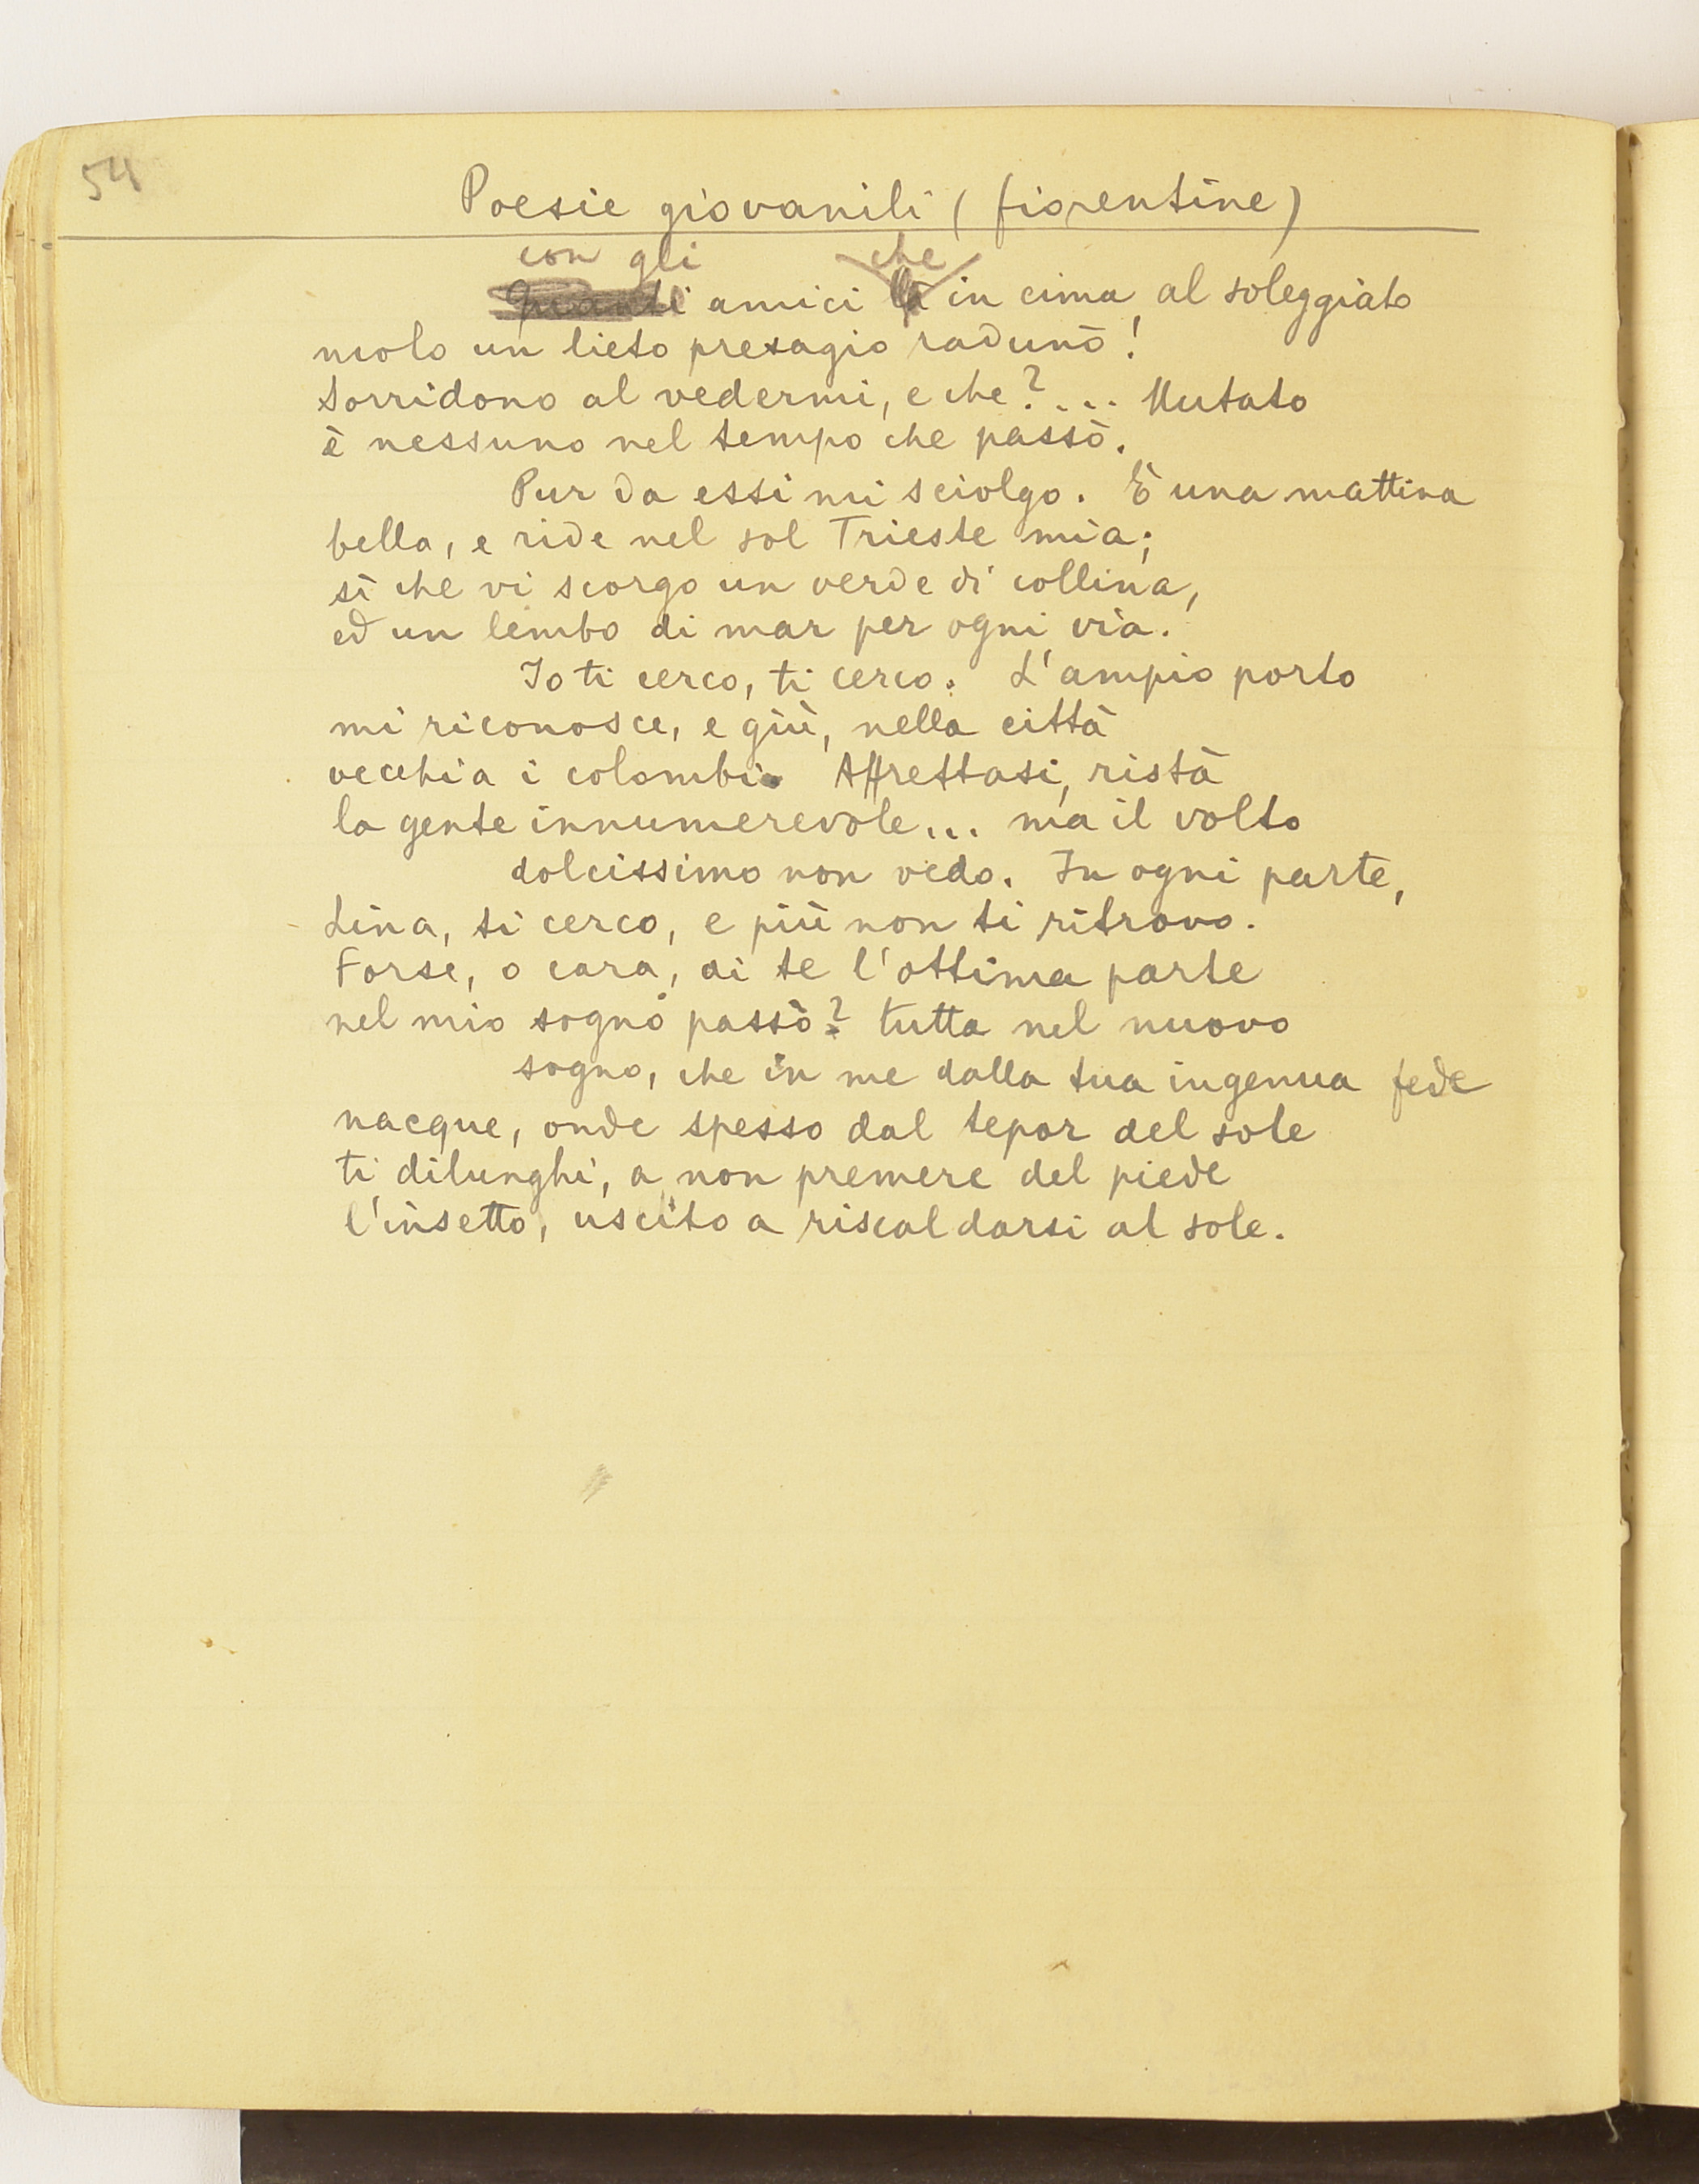 54
Poesie giovanili (fiorentine)
con gli che
Quanti amici là in cima, al soleggiato
molo un lieto presagio radunò!
Sorridono al vedermi, e che?... Mutato
è nessuno nel tempo che passò.
Pur da essi mi sciolgo. È una mattina
bella, e ride nel sol Trieste mia;
sì che vi scorgo un verde di collina,
ed un lembo di mar per ogni via.
Io ti cerco, ti cerco. L'ampio porto
mi riconosce, e giù, nella città
vecchia i colombi. Affrettasi, ristà
la gente innumerevole... ma il volto
dolcissimo non vedo. In ogni parte,
Lina, ti cerco, e più non ti ritrovo.
Forse, o cara, di te l'ottima parte
nel mio sogno passò? tutta nel nuovo
sogno, che in me dalla tua ingenua fede
nacque, onde spesso dal tepor del sole
ti dilunghi, a non premere del piede
l'insetto, uscito a riscaldarsi al sole.